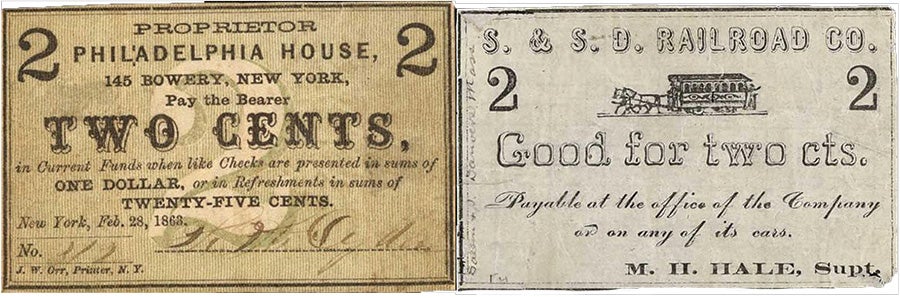 PROPRIETOR
2 PHILADELPHIA HOUSE, 2
145 BOWERY, NEW YORK,
Pay the Bearer
TWO CENTS,
in Current Funds when like Checks are presented in sums of
ONE DOLLAR, or in Refreshments in sums of
TWENTY-FIVE CENTS.
New York, Feb. 28, 1863.
No.
J. W. Orr, Printer, N. Y.
S. & S. D. RAILROAD CO.
2 2
Good for two cts.
Payable at the office of the Company
or on any of its cars.
M. H. HALE, Supt.